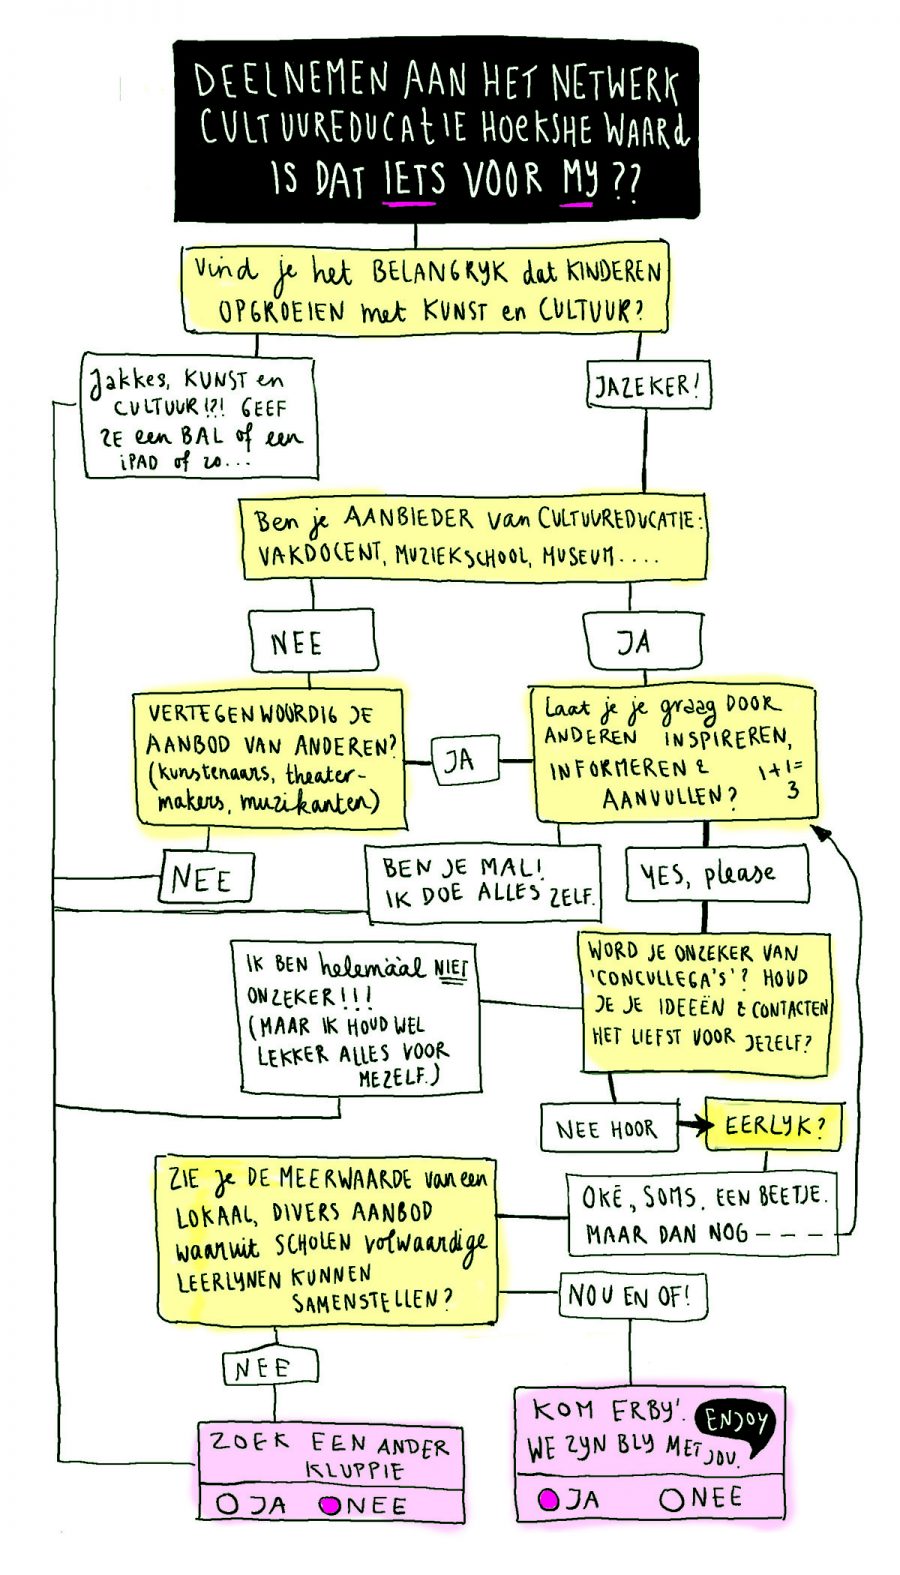 DEELNEMEN AAN HET NETWERK
CULTUUREDUCATIE HOEKSHE WAARD
IS DAT IETS VOOR MY??
Vind je het BELANGRYK dat KINDEREN
OPGROEIEN met KUNST en CULTUUR?
Jakkes, KUNST en
CULTUUR!?! GEEF
ZE een BAL of een
iPAD of zo...
JAZEKER!
Ben je AANBIEDER van CULTUUREDUCATIE:
VAKDOCENT, MUZIEKSCHOOL, MUSEUM....
NEE
JA
VERTEGENWOORDIG JE
AANBOD VAN ANDEREN?
(kunstenaars, theater-
makers, muzikanten)
JA
Laat je je graag DOOR
ANDEREN INSPIREREN,
INFORMEREN &
AANVULLEN?
1+1=
3
NEE
BEN JE MAL!
IK DOE ALLES ZELF.
YES, please
IK BEN helemààl NIET
ONZEKER!!!
(MAAR IK HOUD WEL
LEKKER ALLES VOOR
MEZELF.)
WORD JE ONZEKER VAN
'CONCULLEGA'S'? HOUD
JE JE IDEEËN & CONTACTEN
HET LIEFST VOOR JEZELF?
NEE HOOR
EERLYK?
OKÉ, SOMS. EEN BEETJE.
MAAR DAN NOG ----
ZIE je DE MEERWAARDE van een
LOKAAL, DIVERS AANBOD
waaruit SCHOLEN volwaardige
LEERLYNEN KUNNEN
SAMENSTELLEN?
NOU EN OF!
NEE
ZOEK EEN ANDER
KLUPPIE
JA NEE
KOM ERBY'.
ENJOY
WE ZYN BLY MET JOU.
JA NEE